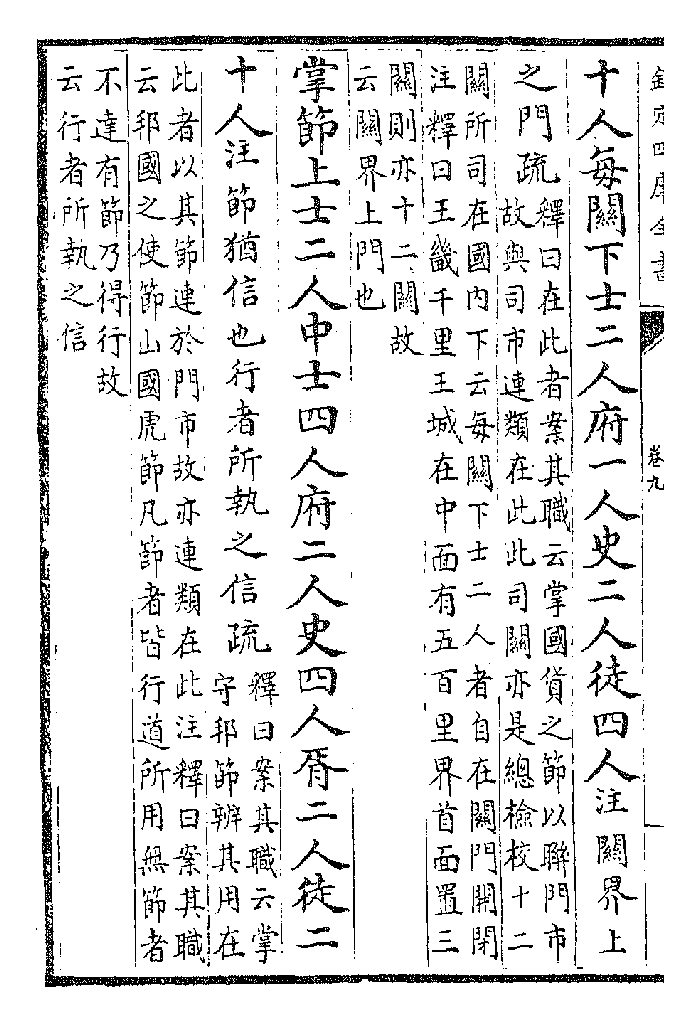 欽定四庫全書
卷九
十人每關下士二人府一人史二人徒四人注關界上
之門疏
釋曰在此者案其職云掌國貨之節以聯門市
故與司市連類在此此司關亦是總檢校十二
關所司在國内下云每關下士二人者自在關門開閉
注釋曰王畿千里王城在中面有五百里界首面置三
關則亦十二關故
云關界上門也
掌節上士二人中士四人府二人史四人胥二人徒二
十人注節猶信也行者所執之信疏
釋曰案其職云掌
守邦節辨其用在
此者以其節連於門市故亦連類在此注釋曰案其職
云邦國之使節山國虎節凡節者皆行道所用無節者
不達有節乃得行故
云行者所執之信